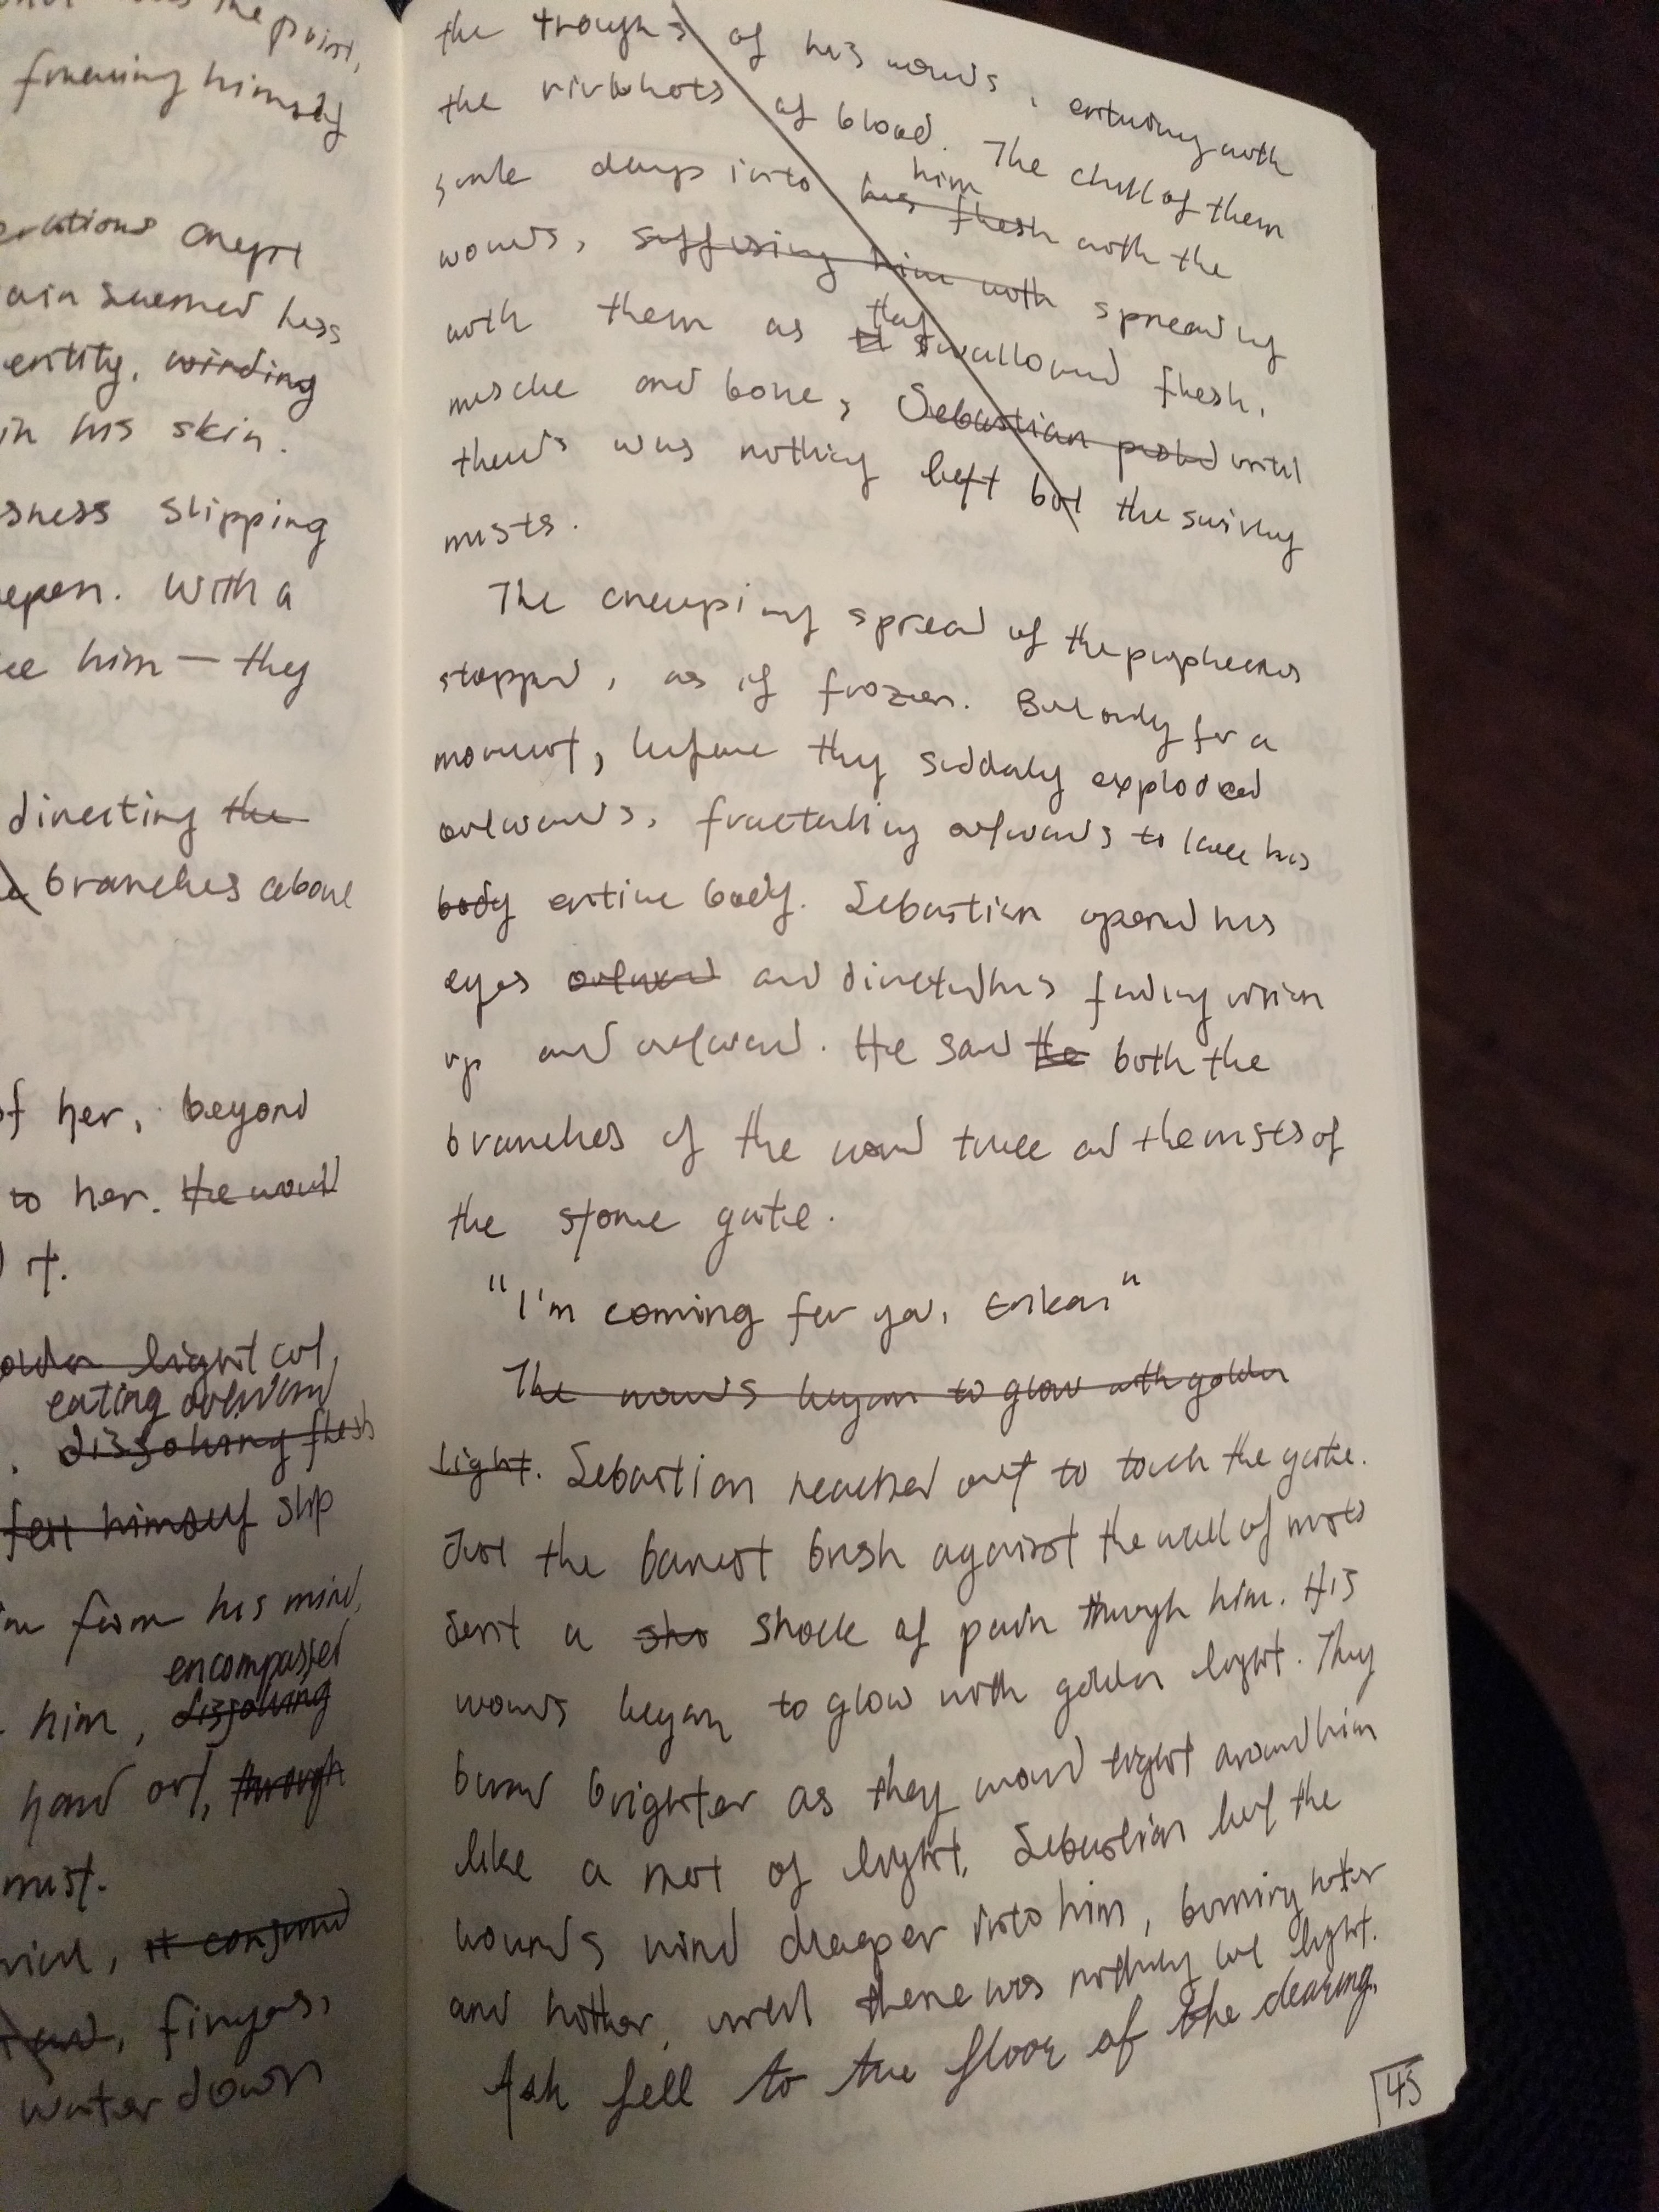 the point,
himself
crept
ain seemed less
entity, winding
in his skin.
sness slipping
epen. With a
ee him — they
directing the
branches above
of her, beyond
to her. He would
it.
light out,
eating outward
dissolving flesh
felt himself slip
from his mind,
encompassed
him, dissolving
hand out, through
mist.
it consumed
fingers,
water down
the troughs of his wounds, entwining with
the rivulets of blood. The chill of them
sunk deeps into his flesh him with the
wounds, suffusing him with spreading
with them as they swallowed flesh,
muscle and bone, Sebastian until
there was nothing left but the swirling
mists.
The creeping spread of the
stopped, as if frozen. But only for a
moment, before they suddenly exploded
outwards, outwards to lace his
body entire body. Sebastian opened his
eyes outward and directed his fading vision
up and outward. He saw the both the
branches of the tree and the mists of
the stone gate.
"I'm coming for you, Erikar"
The wounds began to glow with golden
light. Sebastian reached out to touch the gate.
Just the barest brush against the wall of mists
sent a sho shock of pain through him. His
wounds began to glow with golden light. They
burned brighter as they wound tight around him
like a net of light. Sebastian let the
wounds wind deeper into him, burning hotter
and hotter, until there was nothing but light.
Ash fell to the floor of the clearing.
45